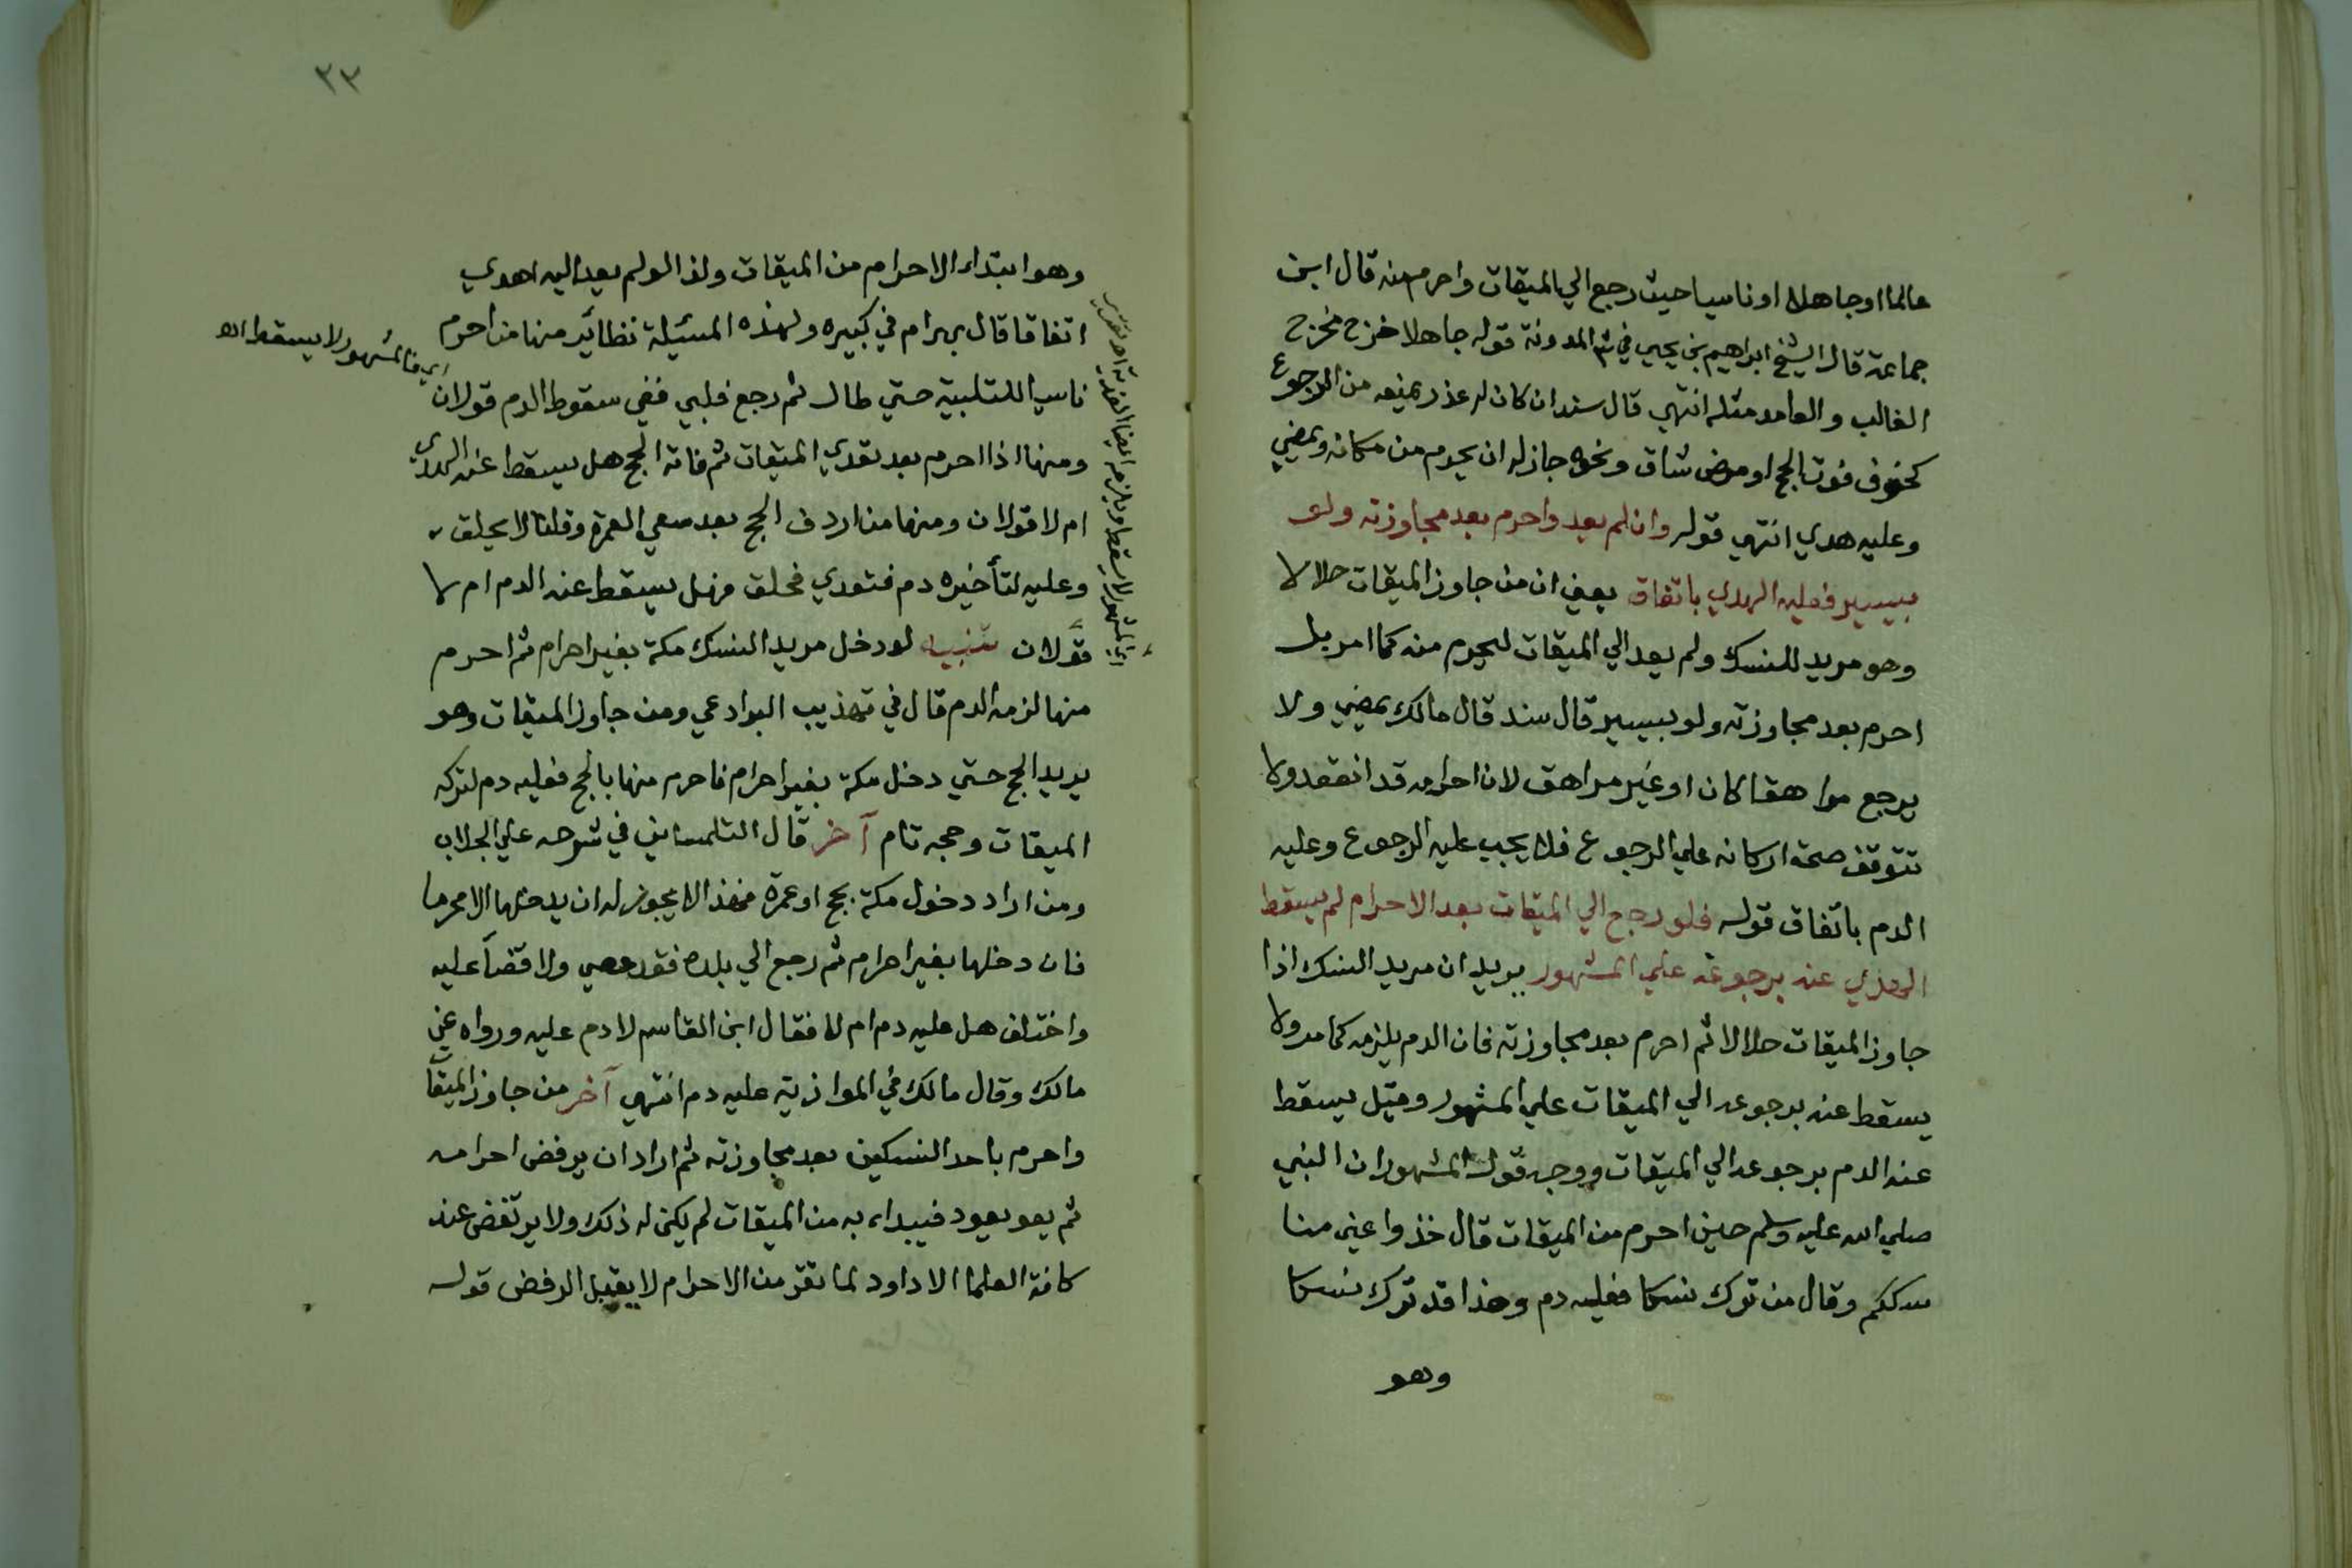 عالما او جاهلا او ناسيا حيث رجع الي الميقات واحرم منه قال ابن
جماعة قال الشيخ ابراهيم بن يحيي في المدونة قوله جاهلا خرج مخرج
الغالب والعامد مثله انتهي قال سند ان كان له عذر يمنعه من الرجوع
كخوف فوت الحج او مرض شاق ونحوه جاز له ان يحرم من مكانه ويمضي
وعليه هدي انتهي قوله وان لم يعد واحرم بعد مجاوزته ولو
بيسير فعليه الهدي باتفاق يعني ان من جاوز الميقات حلالا
وهو مريد للنسك ولم يعد الي الميقات ليحرم منه كما امر بل
احرم بعد مجاوزته ولو بيسير قال سند قال مالك يمضي ولا
يرجع مراهقا كان او غير مراهق لان احرامه قد انعقد ولا
تتوقف صحة اركانه علي الرجوع فلا يجب عليه الرجوع وعليه
الدم باتفاق قوله فلو رجع الي الميقات بعد الاحرام لم يسقط
الهدي عنه برجوعه علي المشهور يريد ان مريد النسك اذا
جاوز الميقات حلالا ثم احرم بعد مجاوزته فان الدم يلزمه كما مر ولا
يسقط عنه برجوعه الي الميقات علي المشهور وقيل يسقط
عنه الدم برجوعه الي الميقات ووجه قول المشهور ان النبي
صلي الله عليه وسلم حين احرم من الميقات قال خذوا عني منا
سككم وقال من ترك نسكا فعليه دم وهذا قد ترك نسكا
وهو
٣٣
وهو ابتداء الاحرام من الميقات ولذا لو لم يعد اليه اهدي
اتفاقا قال بهرام في كبيره ولهذه المسئلة نظائر منها من احرم
ناسيا للتلبية حتي طال ثم رجع فلبي ففي سقوط الدم قولان
ومنها اذا احرم بعد تعدي الميقات ثم فاته الحج هل يسقط عنه الهدي
ام لا قولان ومنها من اردف الحج بعد سعي العمرة وقلنا لا يحلق
وعليه لتأخيره دم فتعدي فحلق فهل يسقط عنه الدم ام لا
قولان تنبيه لو دخل مريد النسك مكة بغير احرام ثم احرم
منها لزمه الدم قال في تهذيب البرادعي ومن جاوز الميقات وهو
يريد الحج حتي دخل مكة بغير احرام فاحرم منها بالحج فعليه دم لتركه
الميقات وحجه تام آخر قال التلمساني في شرحه علي الجلاب
ومن اراد دخول مكة بحج او عمرة فهذا لا يجوز له ان يدخلها الا محرما
فان دخلها بغير احرام ثم رجع الي بلده فقد عصي ولا قضآ عليه
واختلف هل عليه دم ام لا فقال ابن القاسم لا دم عليه ورواه عن
مالك وقال مالك في الموازية عليه دم انتهي آخر من جاوز الميقات
واحرم باحد النسكين بعد مجاوزته ثم اراد ان يرفض احرامه
ثم يعو يعود فيبداء به من الميقات لم يكن له ذلك ولا يرتفض عند
كافة العلما الا داود لما تقرر من الاحرام لا يقبل الرفض قوله
فالمشهور لا يسقط اه
المشهور لا يسقط ويلزم ايضا الفدية اه